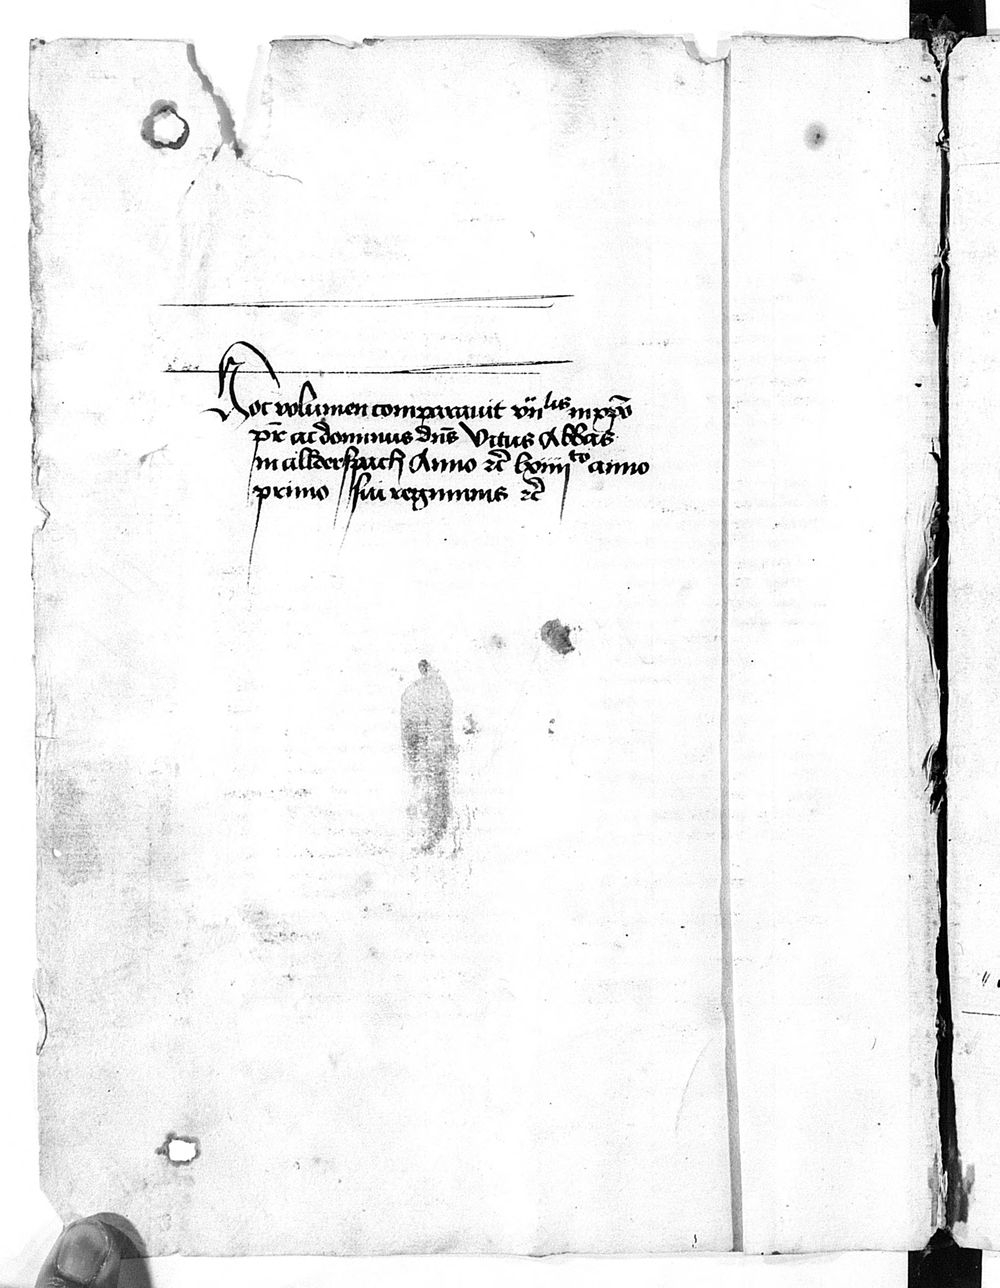 Hoc volumen comparauit vn̄lis in xpō
pr̄ ac dominus dn̄s Vitus Abbas
in allderspach Anno ⁊c̄ lxiiii to anno
primo sui regiminis ⁊c̄